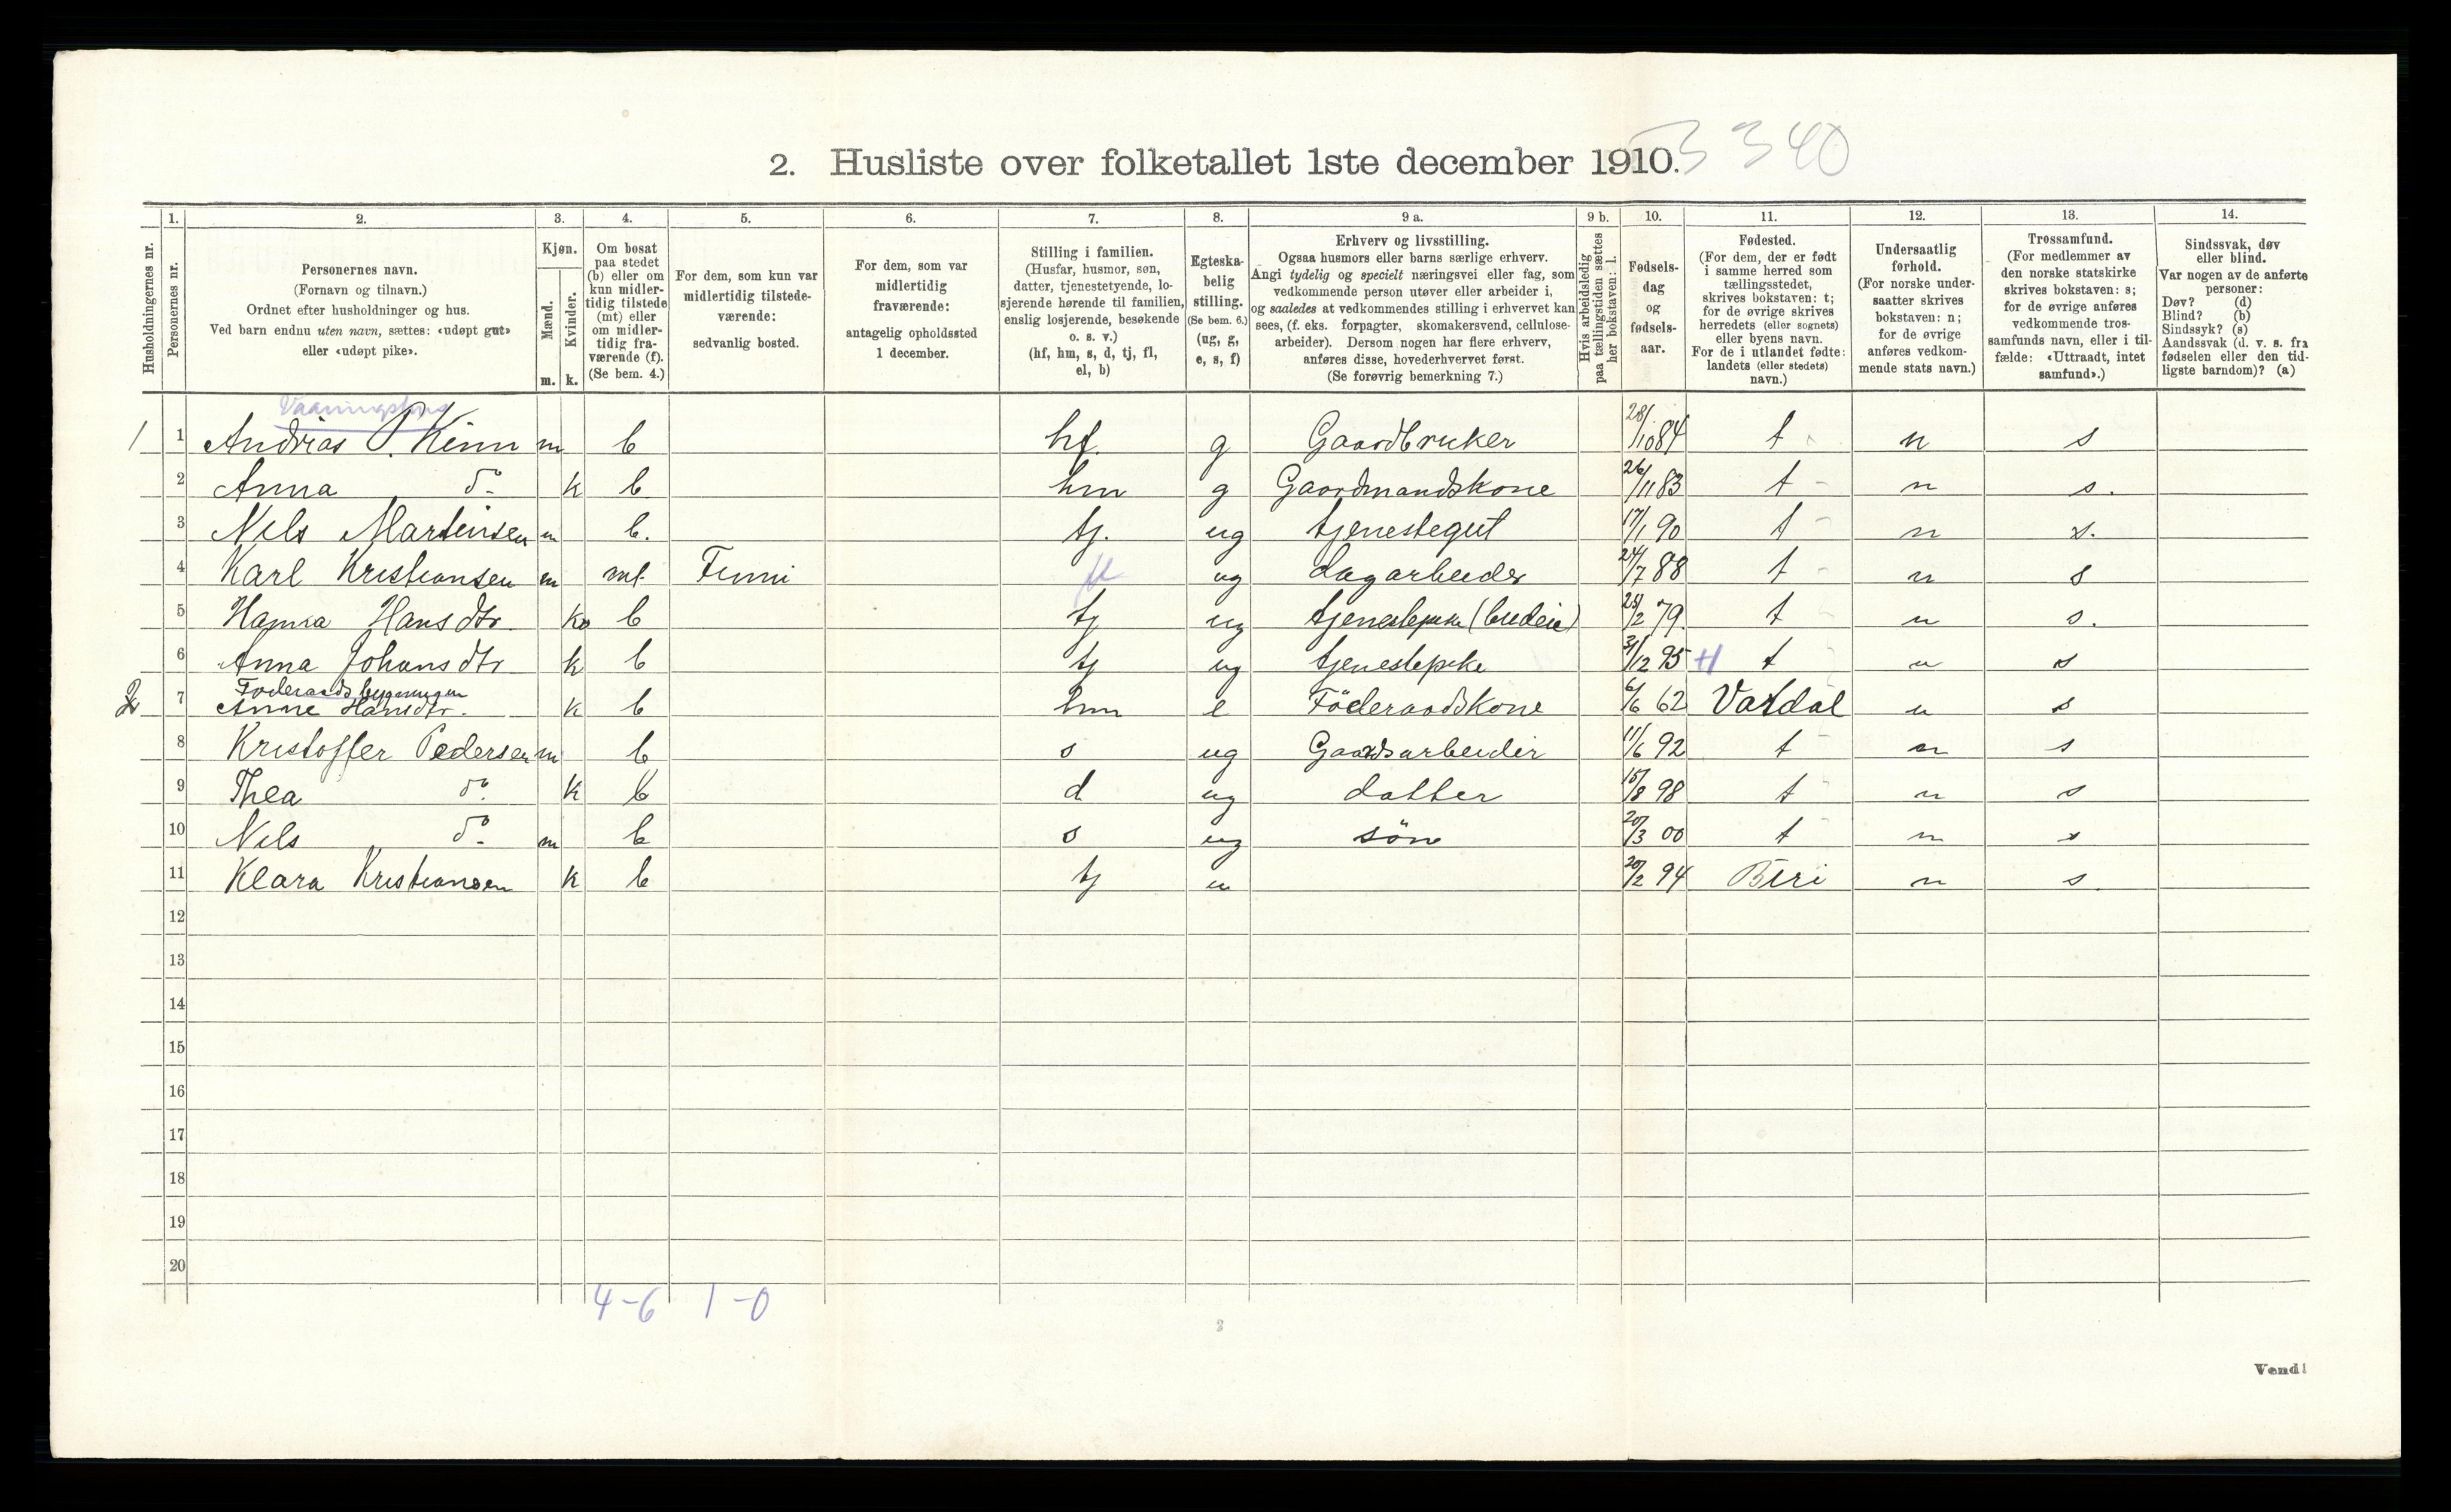 2. Husliste over folketallet 1ste december 1910. 3 340
Husholdningernes nr.
1. Personernes nr.
2. Personernes navn. (Fornavn og tilnavn.) Ordnet efter husholdninger og hus. Ved barn endnu uten navn, sættes: «udøpt gut» eller «udøpt pike».
3. Kjøn. Mænd. m. Kvinder. k.
4. Om bosat paa stedet (b) eller om kun midlertidig tilstede (mt) eller om midlertidig fraværende (f). (Se bem. 4.)
5. For dem, som kun var midlertidig tilstedeværende: sedvanlig bosted.
6. For dem, som var midlertidig fraværende: antagelig opholdssted 1 december.
7. Stilling i familien. (Husfar, husmor, søn, datter, tjenestetyende, losjerende hørende til familien, enslig losjerende, besøkende o. s. v.) (hf, hm, s, d, tj, fl, el, b)
8. Egteskabelig stilling. (Se bem. 6.) (ug, g, e, s, f)
9 a. Erhverv og livsstilling. Ogsaa husmors eller barns særlige erhverv. Angi tydelig og specielt næringsvei eller fag, som vedkommende person utøver eller arbeider i, og saaledes at vedkommendes stilling i erhvervet kan sees, (f. eks. forpagter, skomakersvend, cellulosearbeider). Dersom nogen har flere erhverv, anføres disse, hovederhvervet først. (Se forøvrig bemerkning 7.)
9 b. Hvis arbeidsledig paa tællingstiden sættes her bokstaven: l.
10. Fødselsdag og fødselsaar.
11. Fødested. (For dem, der er født i samme herred som tællingsstedet, skrives bokstaven: t; for de øvrige skrives herredets (eller sognets) eller byens navn. For de i utlandet fødte: landets (eller stedets) navn.)
12. Undersaatlig forhold. (For norske undersaatter skrives bokstaven: n; for de øvrige anføres vedkommende stats navn.)
13. Trossamfund. (For medlemmer av den norske statskirke skrives bokstaven: s; for de øvrige anføres vedkommende trossamfunds navn, eller i tilfælde: «Uttraadt, intet samfund».)
14. Sindssvak, døv eller blind. Var nogen av de anførte personer: Døv? (d) Blind? (b) Sindssyk? (s) Aandssvak (d. v. s. fra fødselen eller den tidligste barndom)? (a)
1 1 Andreas P. Kinn m b hf. g Gaardbruker 28/10 84 t n s
2 Anna do k b hm g Gaardmandskone 26/11 83 t n s.
3 Nels Martinsen m b. tj. ug tjenestegut 17/1 90 t n s.
4 Karl Kristiansen m mt. fl ug dagarbeider 24/7 88 t n s
5 Hanna Hansdtr k b tj ug tjenestepike (budeie) 28/2 79. t n s.
6 Anna Johansdtr k b tj ug tjenestepike 31/12 95 t n s
2 Föderaadsbygningen
7 Anne Hansdtr. k b hm e Föderaadskone 6/6 62 Vardal n s
8 Kristoffer Pedersen m b s ug Gaardsarbeider 11/6 92 t n s
9 Thea do k b d ug datter 15/8 98 t n s
10 Nels do m b s ug sön 20/3 00 t n s
11 Klara Kristiansen k b tj u 20/2 94 Biri n s.
12
13
14
15
16
17
18
19
20
4-6 1-0
Vend!